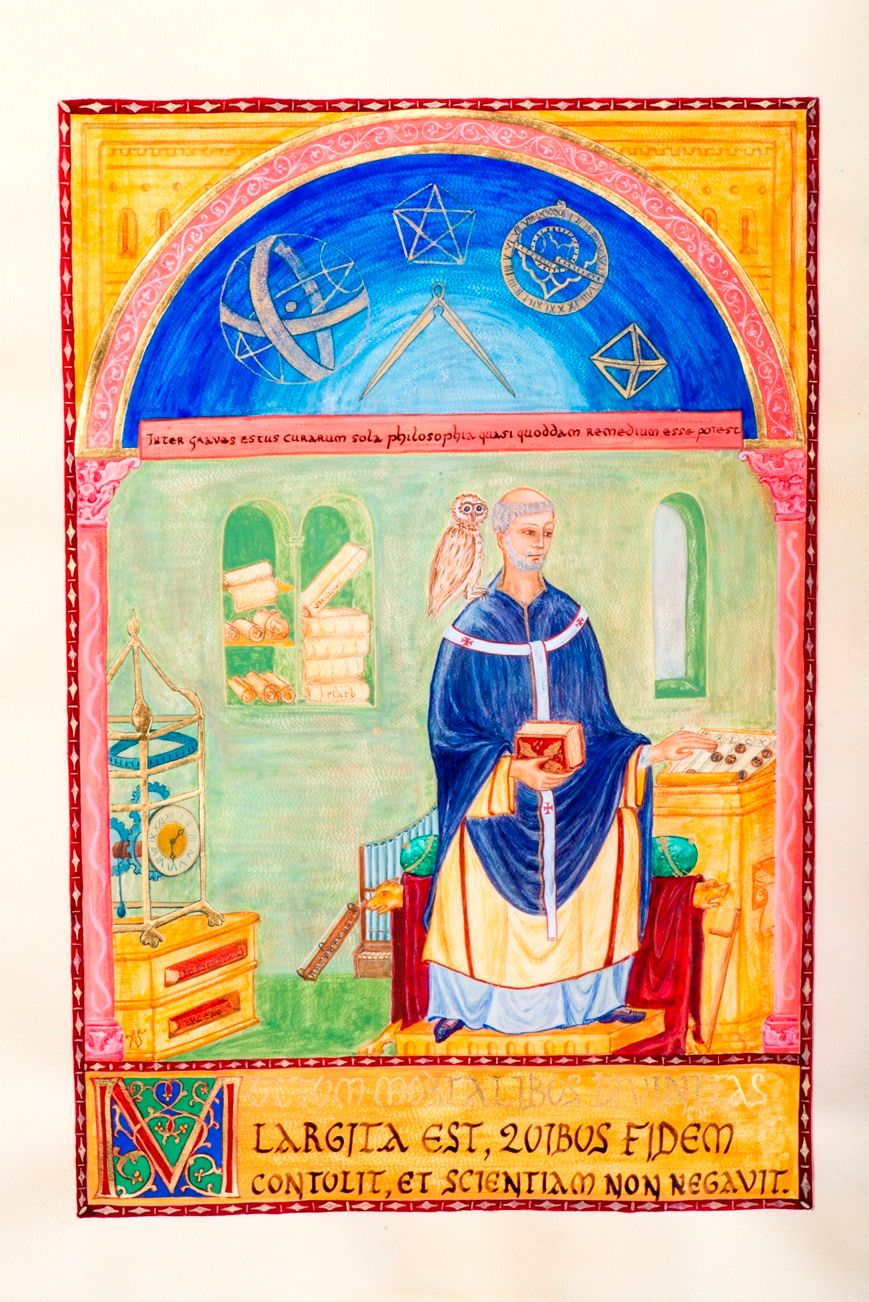 Inter graves estus curarum sola philosophia quasi quoddam remedium esse potest
Plato
AS
MULTUM MORTALIBUS DIVINITAS
LARGITA EST, QUIBUS FIDEM
CONTULIT, ET SCIENTIAM NON NEGAVIT.